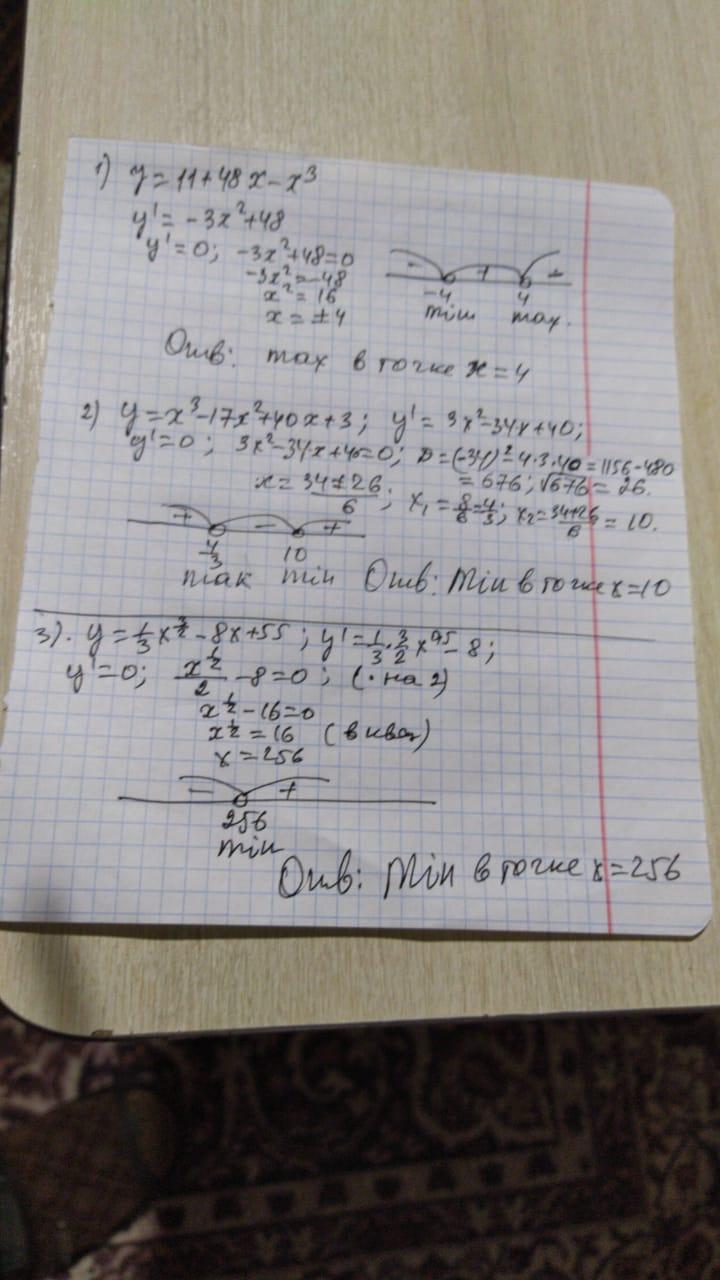 1) y = 11+48x-x³
y' = -3x²+48
y'=0; -3x²+48=0
-3x²=-48
x² = 16
x = ±4
- + -
-4 4
min max.
Отв: max в точке x = 4
2) y = x³-17x²+40x+3; y' = 3x²-34x+40;
y'=0; 3x²-34x+40=0; D=(-34)²-4·3·40=1156-480
= 676; √676 = 26.
x = (34±26)/6; x₁ = 8/6 = 4/3; x₂ = (34+26)/6 = 10.
+ - +
4/3 10
max min Отв: Min в точке x=10
3). y = 1/3 x^(3/2) - 8x+55; y' = 1/3 · 3/2 x^0,5 - 8;
y'=0; x^(1/2)/2 - 8=0; (· на 2)
x^(1/2) - 16=0
x^(1/2) = 16 (в квад)
x = 256
- +
256
min
Отв: Min в точке x=256